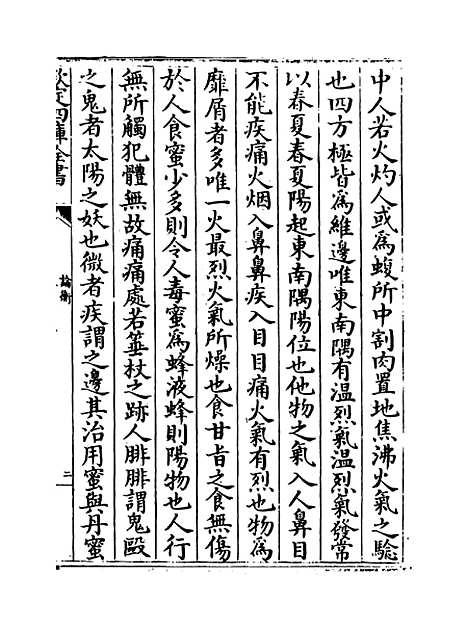 中人若火灼人或為蝮所中割肉置地焦沸火氣之驗
也四方極皆為維邊唯東南隅有温烈氣温烈氣發常
以春夏春夏陽起東南隅陽位也他物之氣入人鼻目
不能疾痛火烟入鼻鼻疾入目目痛火氣有烈也物為
靡屑者多唯一火最烈火氣所燥也食甘旨之食無傷
於人食蜜少多則令人毒蜜為蜂液蜂則陽物也人行
無所觸犯體無故痛痛處若箠杖之跡人腓腓謂鬼毆
之鬼者太陽之妖也微者疾謂之邊其治用蜜與丹蜜
欽定四庫全書
論衡
二